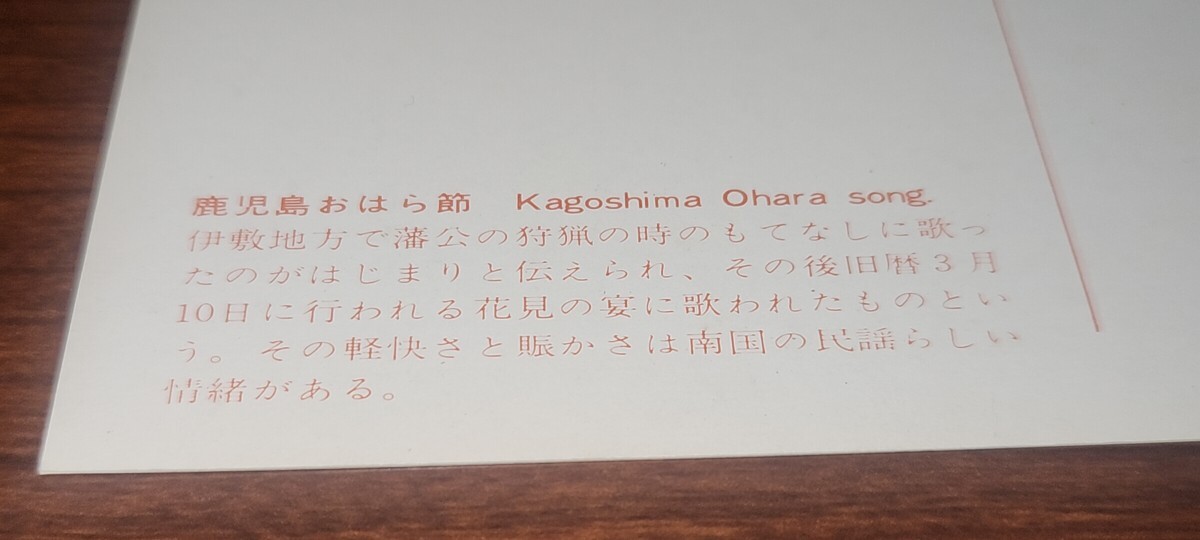 鹿児島おはら節　Kagoshima Ohara song.
伊敷地方で藩公の狩猟の時のもてなしに歌っ
たのがはじまりと伝えられ、その後旧暦３月
10日に行われる花見の宴に歌われたものとい
う。その軽快さと賑かさは南国の民謡らしい
情緒がある。